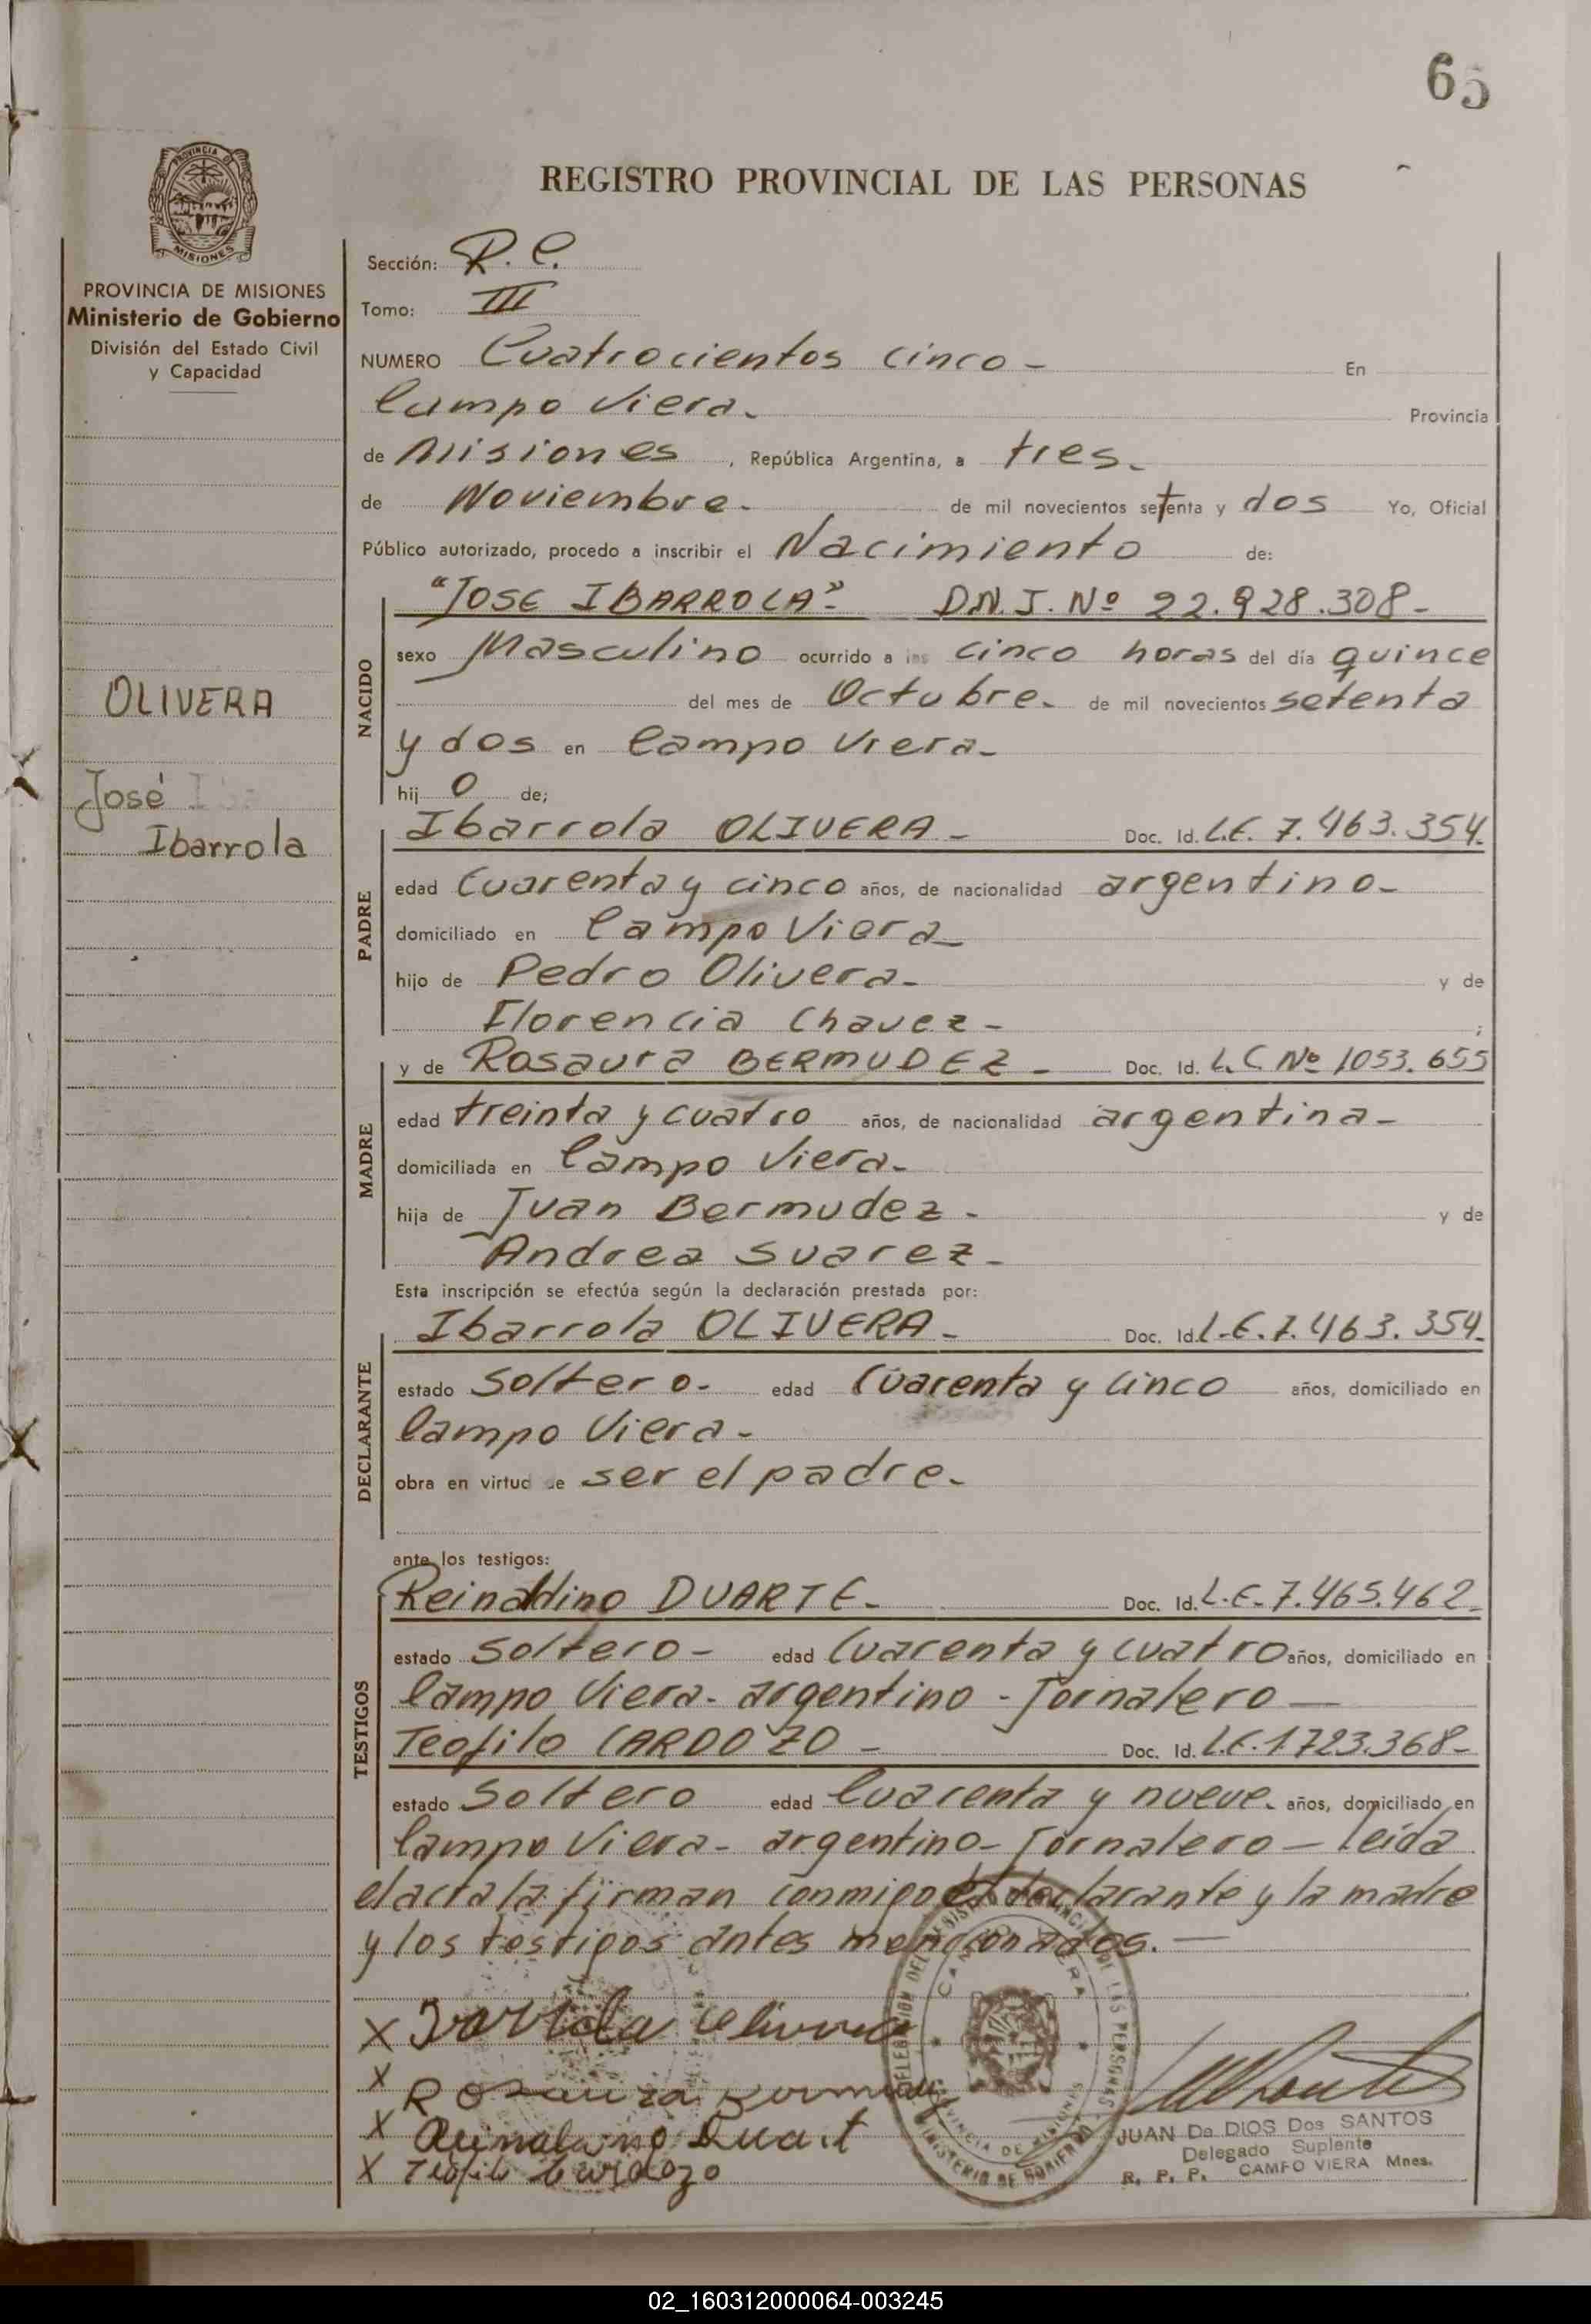 65
REGISTRO PROVINCIAL DE LAS PERSONAS
PROVINCIA DE MISIONES
Ministerio de Gobierno
División del Estado Civil
y Capacidad
OLIVERA
José
Ibarrola
Sección: R. C.
Tomo: III
NUMERO Cuatrocientos cinco - En
Campo Viera. Provincia
de Misiones, República Argentina, a tres.
de Noviembre. de mil novecientos setenta y dos Yo, Oficial
Público autorizado, procedo a inscribir el Nacimiento de:
"JOSE IBARROLA"- D.N.I. Nº 22.928.308-
NACIDO
sexo Masculino ocurrido a las cinco horas del día quince
del mes de Octubre. de mil novecientos setenta
y dos en Campo Viera-
hijo de;
PADRE
Ibarrola OLIVERA- Doc. Id. L.E. 7.463.354.
edad Cuarenta y cinco años, de nacionalidad argentino-
domiciliado en Campo Viera-
hijo de Pedro Olivera- y de
Florencia Chavez- ;
MADRE
y de Rosaura BERMUDEZ- Doc. Id. L.C. Nº 1053.655
edad treinta y cuatro años, de nacionalidad argentina-
domiciliada en Campo Viera-
hija de Juan Bermudez- y de
Andrea Suarez-
Esta inscripción se efectúa según la declaración prestada por:
DECLARANTE
Ibarrola OLIVERA- Doc. Id. L.E. 7.463.354.
estado Soltero- edad Cuarenta y cinco años, domiciliado en
Campo Viera-
obra en virtud de ser el padre-
ante los testigos:
TESTIGOS
Reinaldino DUARTE- Doc. Id. L.E. 7.465.462-
estado Soltero- edad Cuarenta y cuatro años, domiciliado en
Campo Viera- argentino- Jornalero-
Teofilo CARDOZO- Doc. Id. L.E. 1723.368-
estado Soltero edad Cuarenta y nueve- años, domiciliado en
Campo Viera- argentino- Jornalero- leida
el acta la firman conmigo el declarante y la madre
y los testigos antes mencionados.-
X Ibarrola Olivera
X Rosaura
X Duart
X Teofilo Cardozo
DELEGACION DEL REGISTRO PROVINCIAL DE LAS PERSONAS
CAMPO VIERA
PROVINCIA DE MISIONES
MINISTERIO DE GOBIERNO
JUAN De DIOS Dos SANTOS
Delegado Suplente
R. P. P. CAMPO VIERA Mnes.
02_160312000064-003245